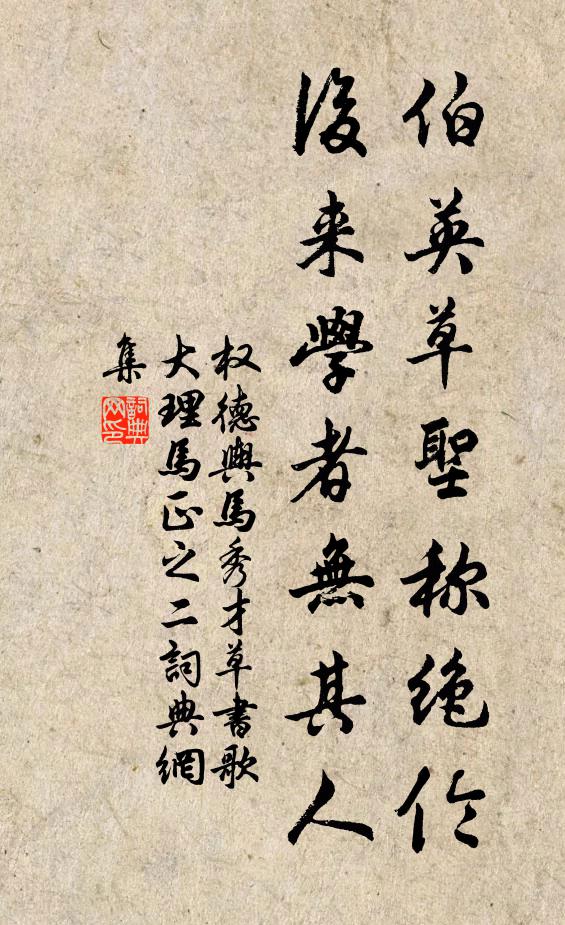 伯英草聖称绝伦
後来學者無其人
权德輿馬秀才草書歌
大理馬正之二詞典網
集
詞典网印